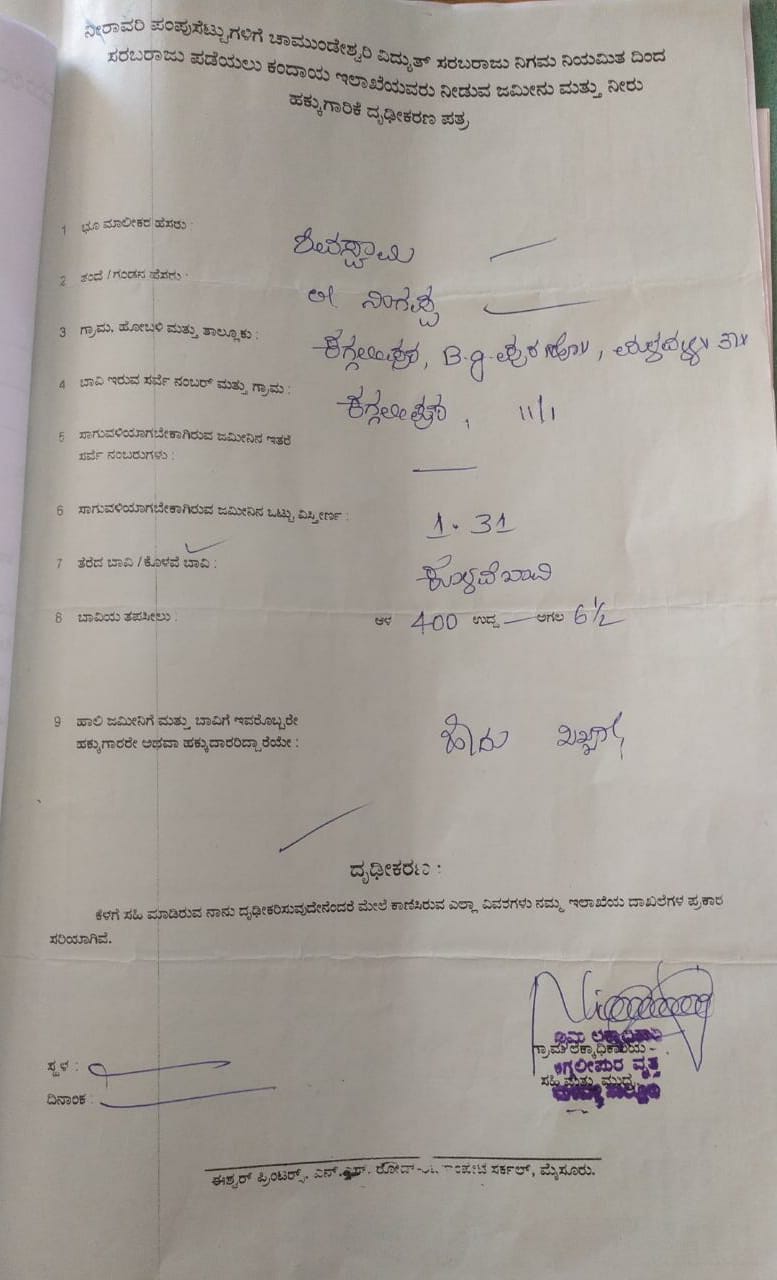 ನೀರಾವರಿ ಪಂಪುಸೆಟ್ಟುಗಳಿಗೆ ಚಾಮುಂಡೇಶ್ವರಿ ವಿದ್ಯುತ್ ಸರಬರಾಜು ನಿಗಮ ನಿಯಮಿತ ದಿಂದ
ಸರಬರಾಜು ಪಡೆಯಲು ಕಂದಾಯ ಇಲಾಖೆಯವರು ನೀಡುವ ಜಮೀನು ಮತ್ತು ನೀರು
ಹಕ್ಕುಗಾರಿಕೆ ದೃಢೀಕರಣ ಪತ್ರ
1 ಭೂ ಮಾಲೀಕರ ಹೆಸರು :
ಶಿವಸ್ವಾಮಿ
2 ತಂದೆ / ಗಂಡನ ಹೆಸರು :
ಲೇ. ನಿಂಗಪ್ಪ
3 ಗ್ರಾಮ, ಹೋಬಳಿ ಮತ್ತು ತಾಲ್ಲೂಕು :
ಕಗ್ಗಲೀಪುರ, B.g.ಪುರ ಹೋ, ಮಳವಳ್ಳಿ ತಾ
4 ಬಾವಿ ಇರುವ ಸರ್ವೆ ನಂಬರ್ ಮತ್ತು ಗ್ರಾಮ :
ಕಗ್ಗಲೀಪುರ, 11/1
5 ಸಾಗುವಳಿಯಾಗಬೇಕಾಗಿರುವ ಜಮೀನಿನ ಇತರೆ
ಸರ್ವೆ ನಂಬರುಗಳು :
6 ಸಾಗುವಳಿಯಾಗಬೇಕಾಗಿರುವ ಜಮೀನಿನ ಒಟ್ಟು ವಿಸ್ತೀರ್ಣ :
1.31
7 ತೆರೆದ ಬಾವಿ / ಕೊಳವೆ ಬಾವಿ :
ಕೊಳವೆಬಾವಿ
8 ಬಾವಿಯ ತಪಸೀಲು : ಆಳ 400 ಉದ್ದ — ಅಗಲ 6 1/2
9 ಹಾಲಿ ಜಮೀನಿಗೆ ಮತ್ತು ಬಾವಿಗೆ ಇವರೊಬ್ಬರೇ
ಹಕ್ಕುಗಾರರೇ ಅಥವಾ ಹಕ್ಕುದಾರರಿದ್ದಾರೆಯೇ :
ದೃಢೀಕರಣ :
ಕೆಳಗೆ ಸಹಿ ಮಾಡಿರುವ ನಾನು ದೃಢೀಕರಿಸುವುದೇನೆಂದರೆ ಮೇಲೆ ಕಾಣಿಸಿರುವ ಎಲ್ಲಾ ವಿವರಗಳು ನಮ್ಮ ಇಲಾಖೆಯ ದಾಖಲೆಗಳ ಪ್ರಕಾರ
ಸರಿಯಾಗಿವೆ.
ಗ್ರಾಮ ಲೆಕ್ಕಾಧಿಕಾರಿಯ
ಕಗ್ಗಲೀಪುರ ವೃತ್ತ
ಸ್ಥಳ :
ಸಹಿ ಮತ್ತು ಮುದ್ರೆ
ದಿನಾಂಕ :
ಈಶ್ವರ್ ಪ್ರಿಂಟರ್ಸ್, ಎನ್.ಎಸ್. ರೋಡ್ ಸರ್ಕಲ್, ಮೈಸೂರು.